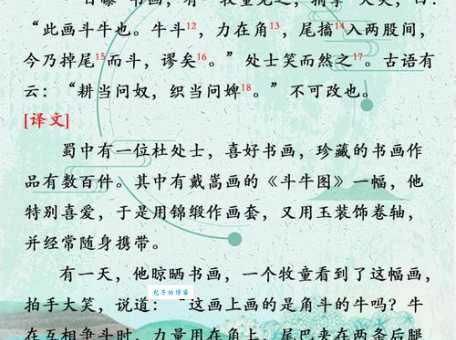 曝书画,有一牧童见之,拊掌大笑,曰:
“此画斗牛也。牛斗12,力在角13,尾搐14入两股间,
今乃掉尾15而斗,谬矣16。”处士笑而然之17。古语有
云:“耕当问奴,织当问婢18。”不可改也。
[译文]
蜀中有一位杜处士,喜好书画,珍藏的书画作
品有数百件。其中有戴嵩画的《斗牛图》一幅,他
特别喜爱,于是用锦缎作画套,又用玉装饰卷轴,
并经常随身携带。
有一天,他晾晒书画,一个牧童看到了这幅画,
拍手大笑,说道:“这画上画的是角斗的牛吗?牛
在互相争斗时,力量用在角上,尾巴夹在两条后腿